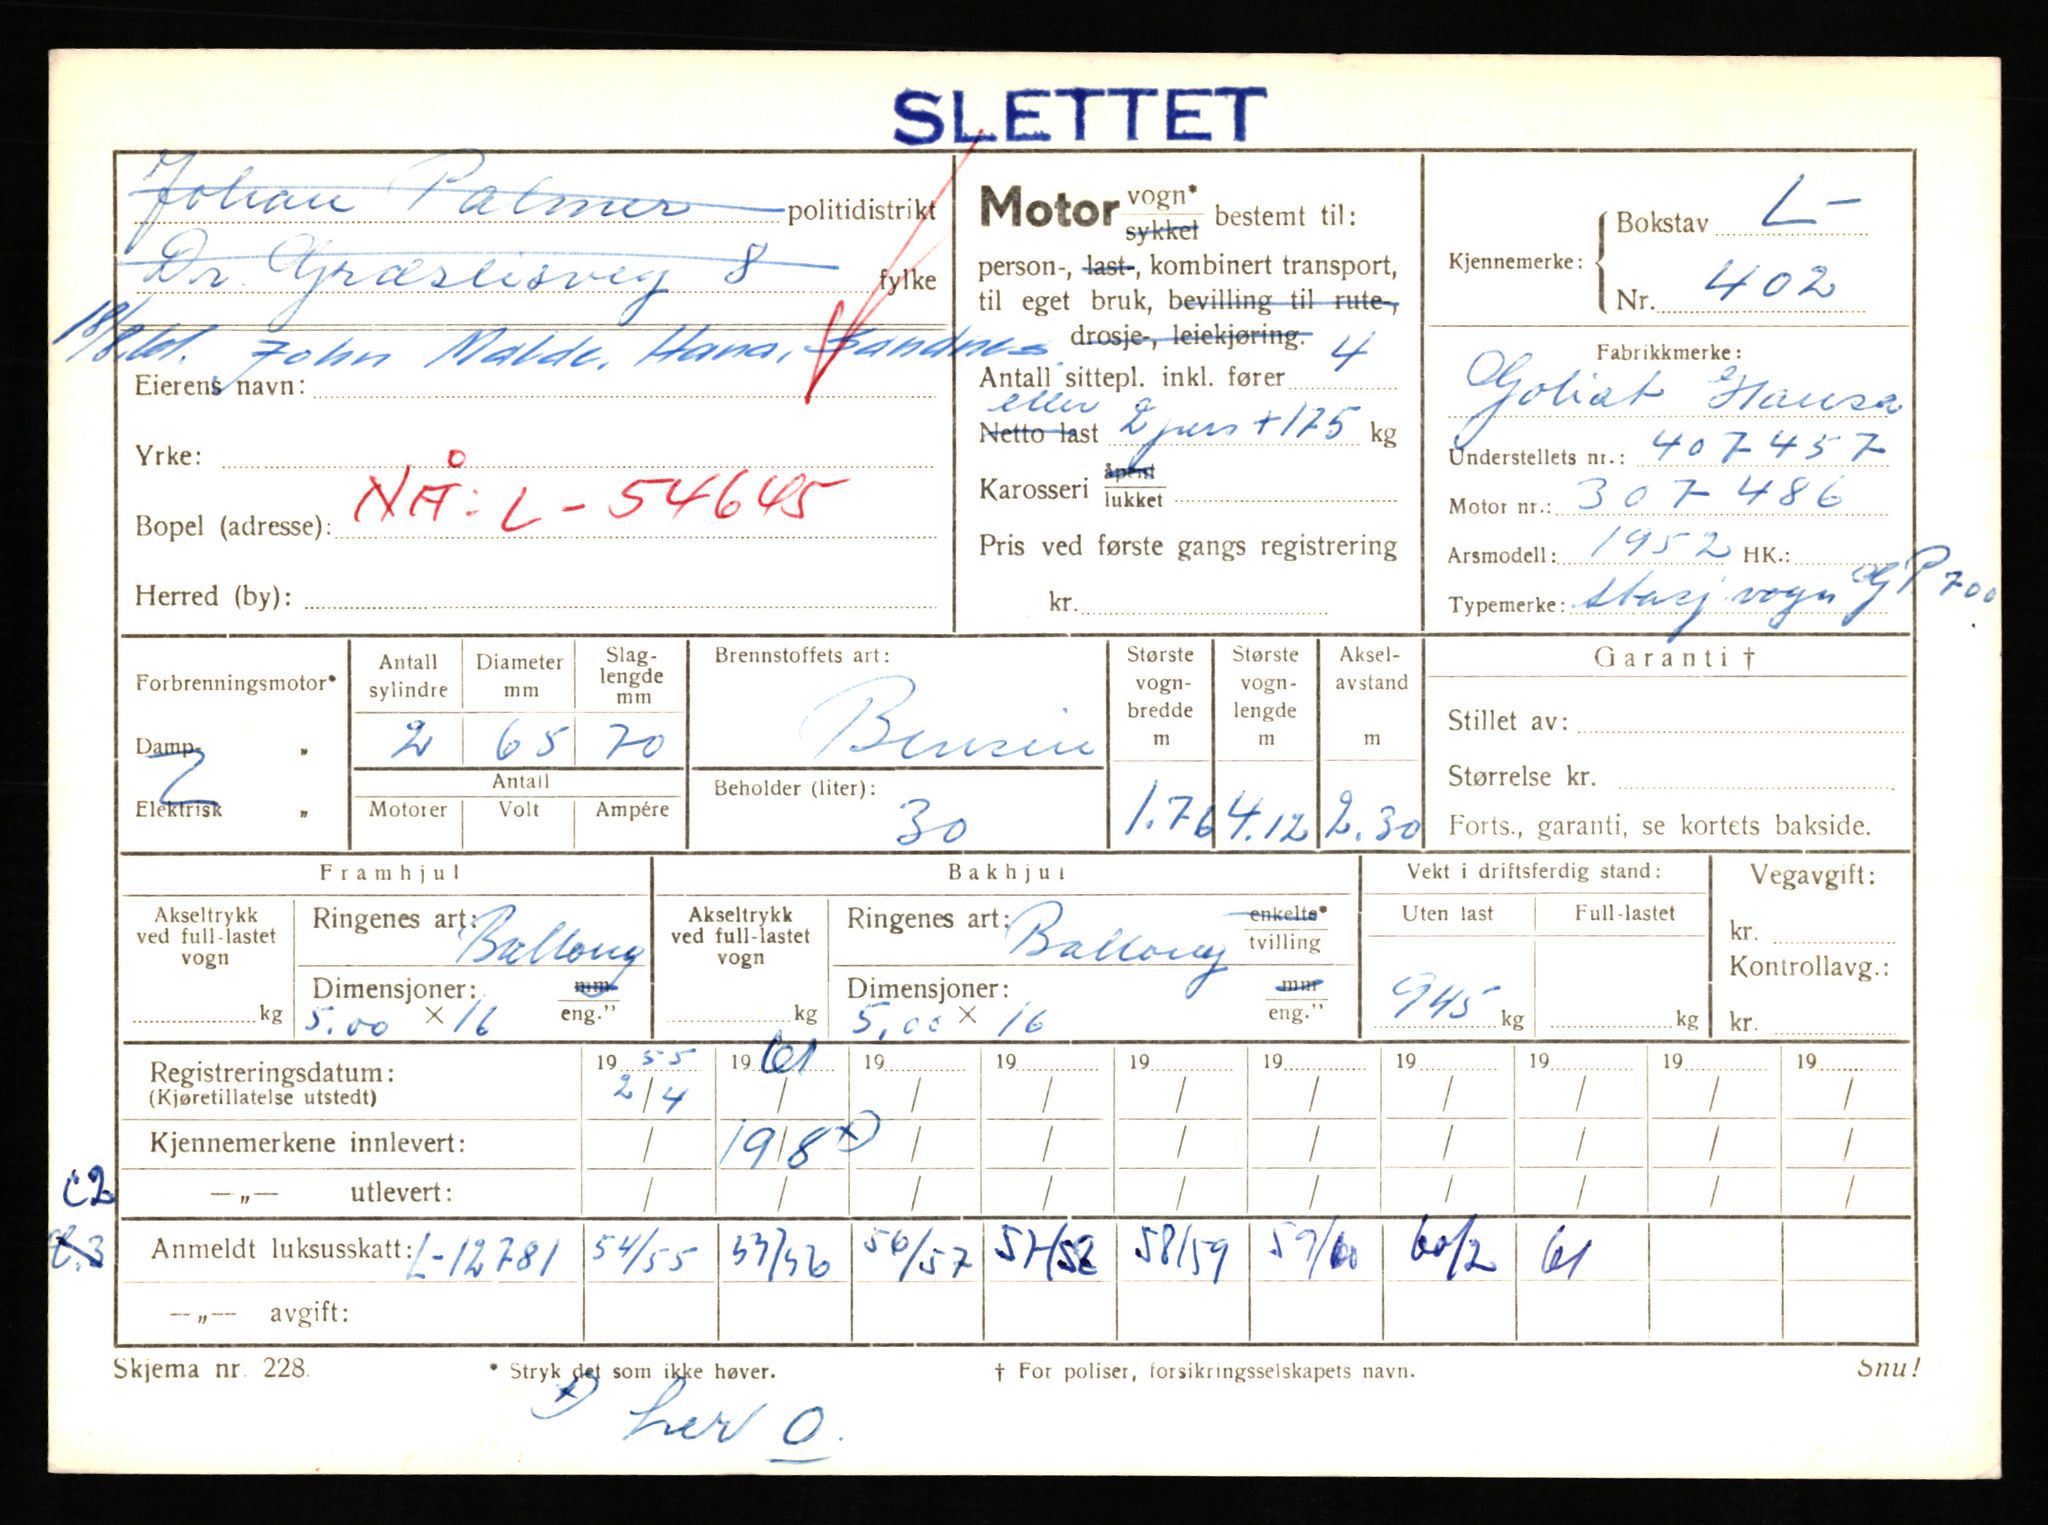 SLETTET
Johan Palmer politidistrikt
Dr. Græslisveg 8 fylke
18/8.61. John Malde, Hana, Sandnes
Eierens navn:
Yrke:
NÅ: L-54645
Bopel (adresse):
Herred (by):
Motor vogn* sykkel bestemt til:
person-, last-, kombinert transport,
til eget bruk, bevilling til rute-,
drosje-, leiekjøring.
Antall sittepl. inkl. fører 4
eller
Netto last 2 pers + 175 kg
Karosseri åpent lukket
Pris ved første gangs registrering
kr.
Kjennemerke: Bokstav L-
Nr. 402
Fabrikkmerke:
Goliat Hansa
Understellets nr.: 407457
Motor nr.: 307486
Årsmodell: 1952 HK.:
Typemerke: Stasj.vogn GP. 700
Forbrenningsmotor*
Damp- „
Elektrisk „
2
Antall sylindre Diameter mm Slag-lengde mm
2 65 70
Antall
Motorer Volt Ampére
Brennstoffets art:
Bensin
Beholder (liter):
30
Største vogn-bredde m Største vogn-lengde m Aksel-avstand m
1.76 4.12 2.30
Garanti †
Stillet av:
Størrelse kr.
Forts., garanti, se kortets bakside.
Framhjul
Akseltrykk ved full-lastet vogn
kg
Ringenes art: Ballong
Dimensjoner: mm eng."
5.00 × 16
Bakhjul
Akseltrykk ved full-lastet vogn
kg
Ringenes art: Ballong enkelte* tvilling
Dimensjoner: mm eng."
5.00 × 16
Vekt i driftsferdig stand:
Uten last Full-lastet
945 kg kg
Vegavgift:
kr.
Kontrollavg.:
kr.
Registreringsdatum: 19 55 19 61 19 19 19 19 19 19 19 19
(Kjøretillatelse utstedt) 2/4 / / / / / / / / /
Kjennemerkene innlevert: / 19/8 x) / / / / / / / /
—„— utlevert: / / / / / / / / / /
Anmeldt luksusskatt: L-12781 54/55 55/56 56/57 57/58 58/59 59/60 60/2 61
—„— avgift:
Skjema nr. 228. * Stryk det som ikke høver. † For poliser, forsikringsselskapets navn. Snu!
x) lev O.